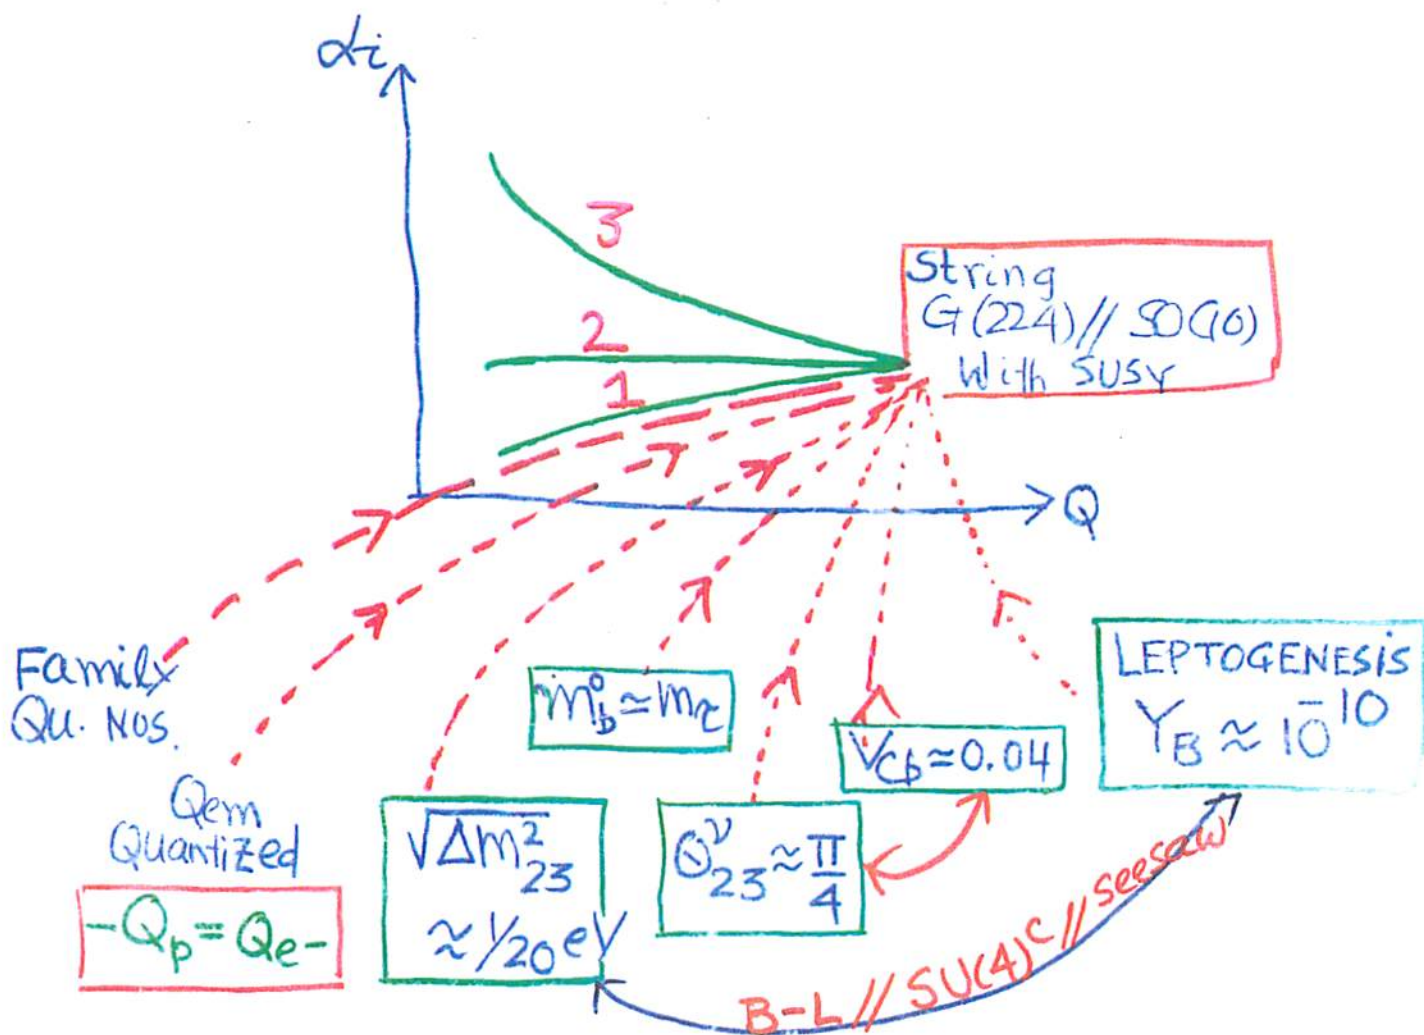 αi
3
2
1
String
G(224)//SO(10)
With SUSY
Q
Family
QU. NOS.
Qem
Quantized
-Qp=Qe-
√Δm²₂₃
≈1/20 eV
m⁰b≃mτ
Θᵛ₂₃≈π/4
Vcb≃0.04
LEPTOGENESIS
YB≈10⁻¹⁰
B-L//SU(4)ᶜ//seesaw